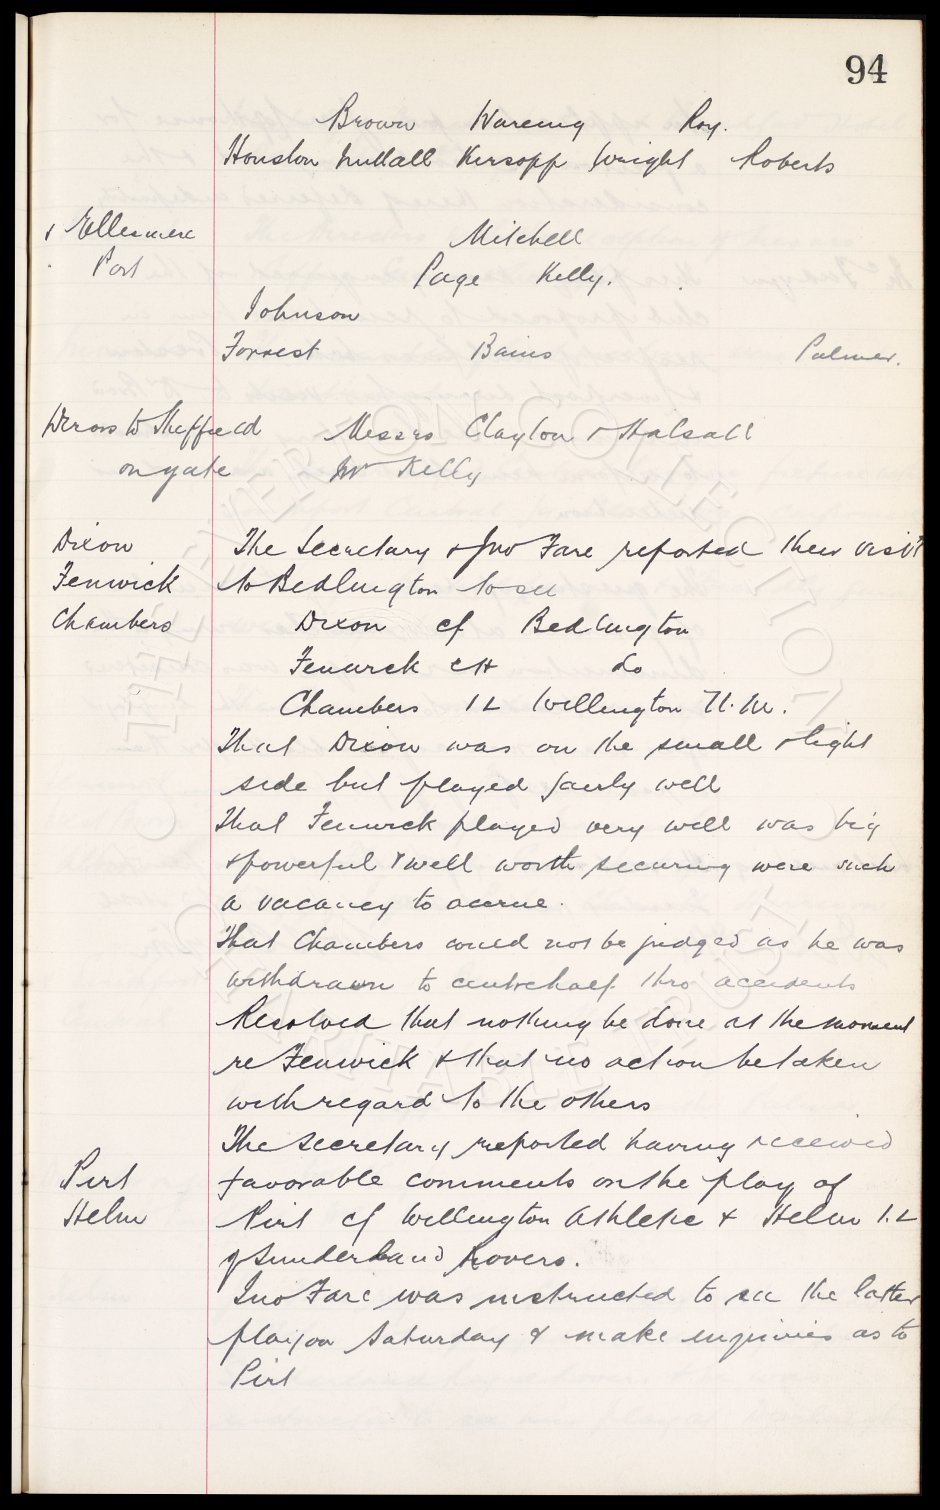 94
Brown Wareing Roy.
Houston Nuttall Kirsopp Wright Roberts
v Ellesmere Mitchell
Port Page Kelly.
Johnson
Forrest Bains Palmer.
Dirors to Sheffield Messrs Clayton & Halsall
on gate Mr Kelly
Dixon The Secretary & Jno Fare reported their visit
Fenwick to Bedlington to see
Chambers Dixon cf Bedlington
Fenwick cH do
Chambers IL Willington U.M.
That Dixon was on the small & light
side but played fairly well
That Fenwick played very well was big
& powerful & well worth securing were such
a vacancy to accrue.
That Chambers could not be judged as he was
withdrawn to centrehalf thro accidents
Resolved that nothing be done at the moment
re Fenwick & that no action be taken
with regard to the others
The Secretary reported having received
Pirt favorable comments on the play of
Helm Pirt cf Willington Athletic & Helm I.L
of Sunderland Rovers.
Jno Fare was instructed to see the latter
play on Saturday & make inquiries as to
Pirt
THE EVERTON COLLECTION
CHARITABLE TRUST